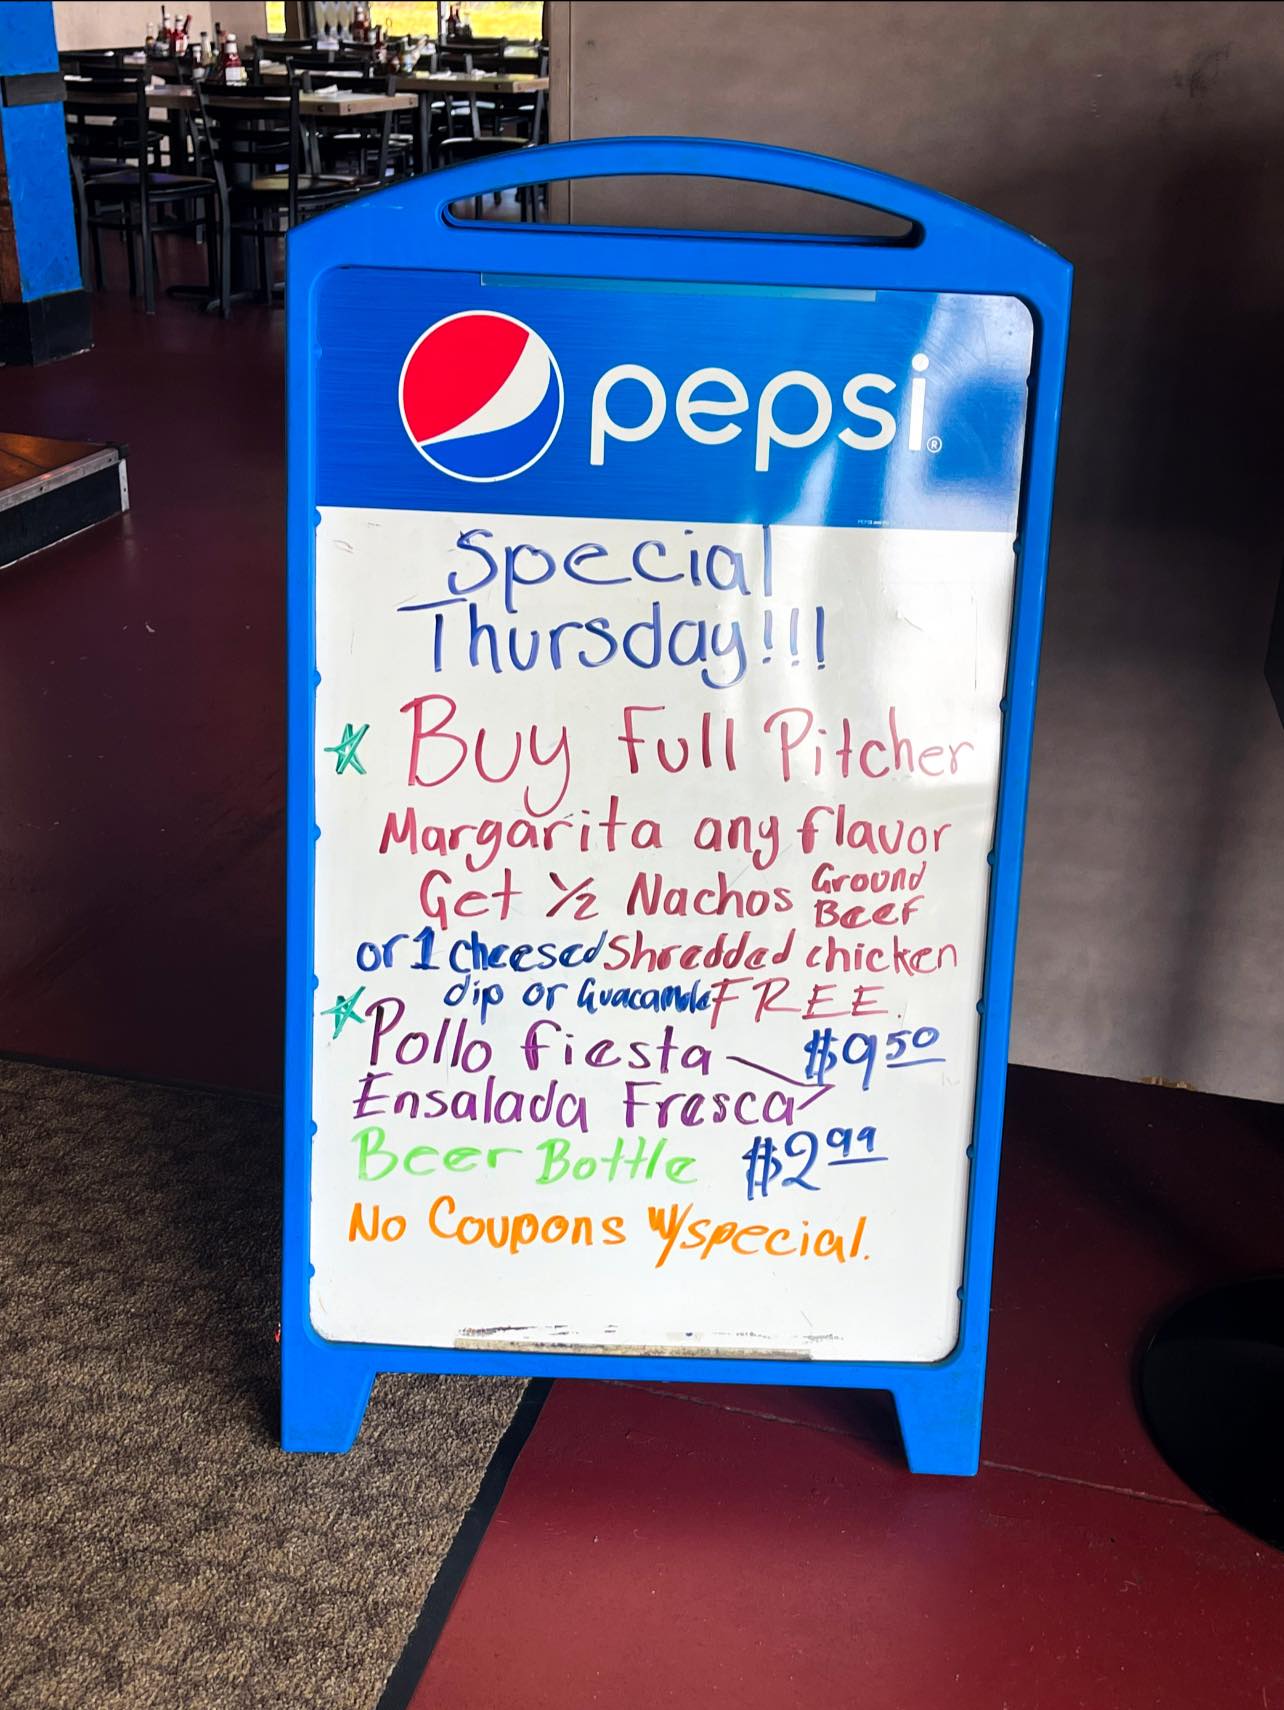 pepsi®
Special
Thursday!!!
Buy Full Pitcher
Margarita any flavor
Get 1/2 Nachos Ground Beef
or 1 cheesed Shredded chicken
dip or Guacamole FREE.
Pollo fiesta $9.50
Ensalada Fresca
Beer Bottle $2.99
No Coupons w/special.